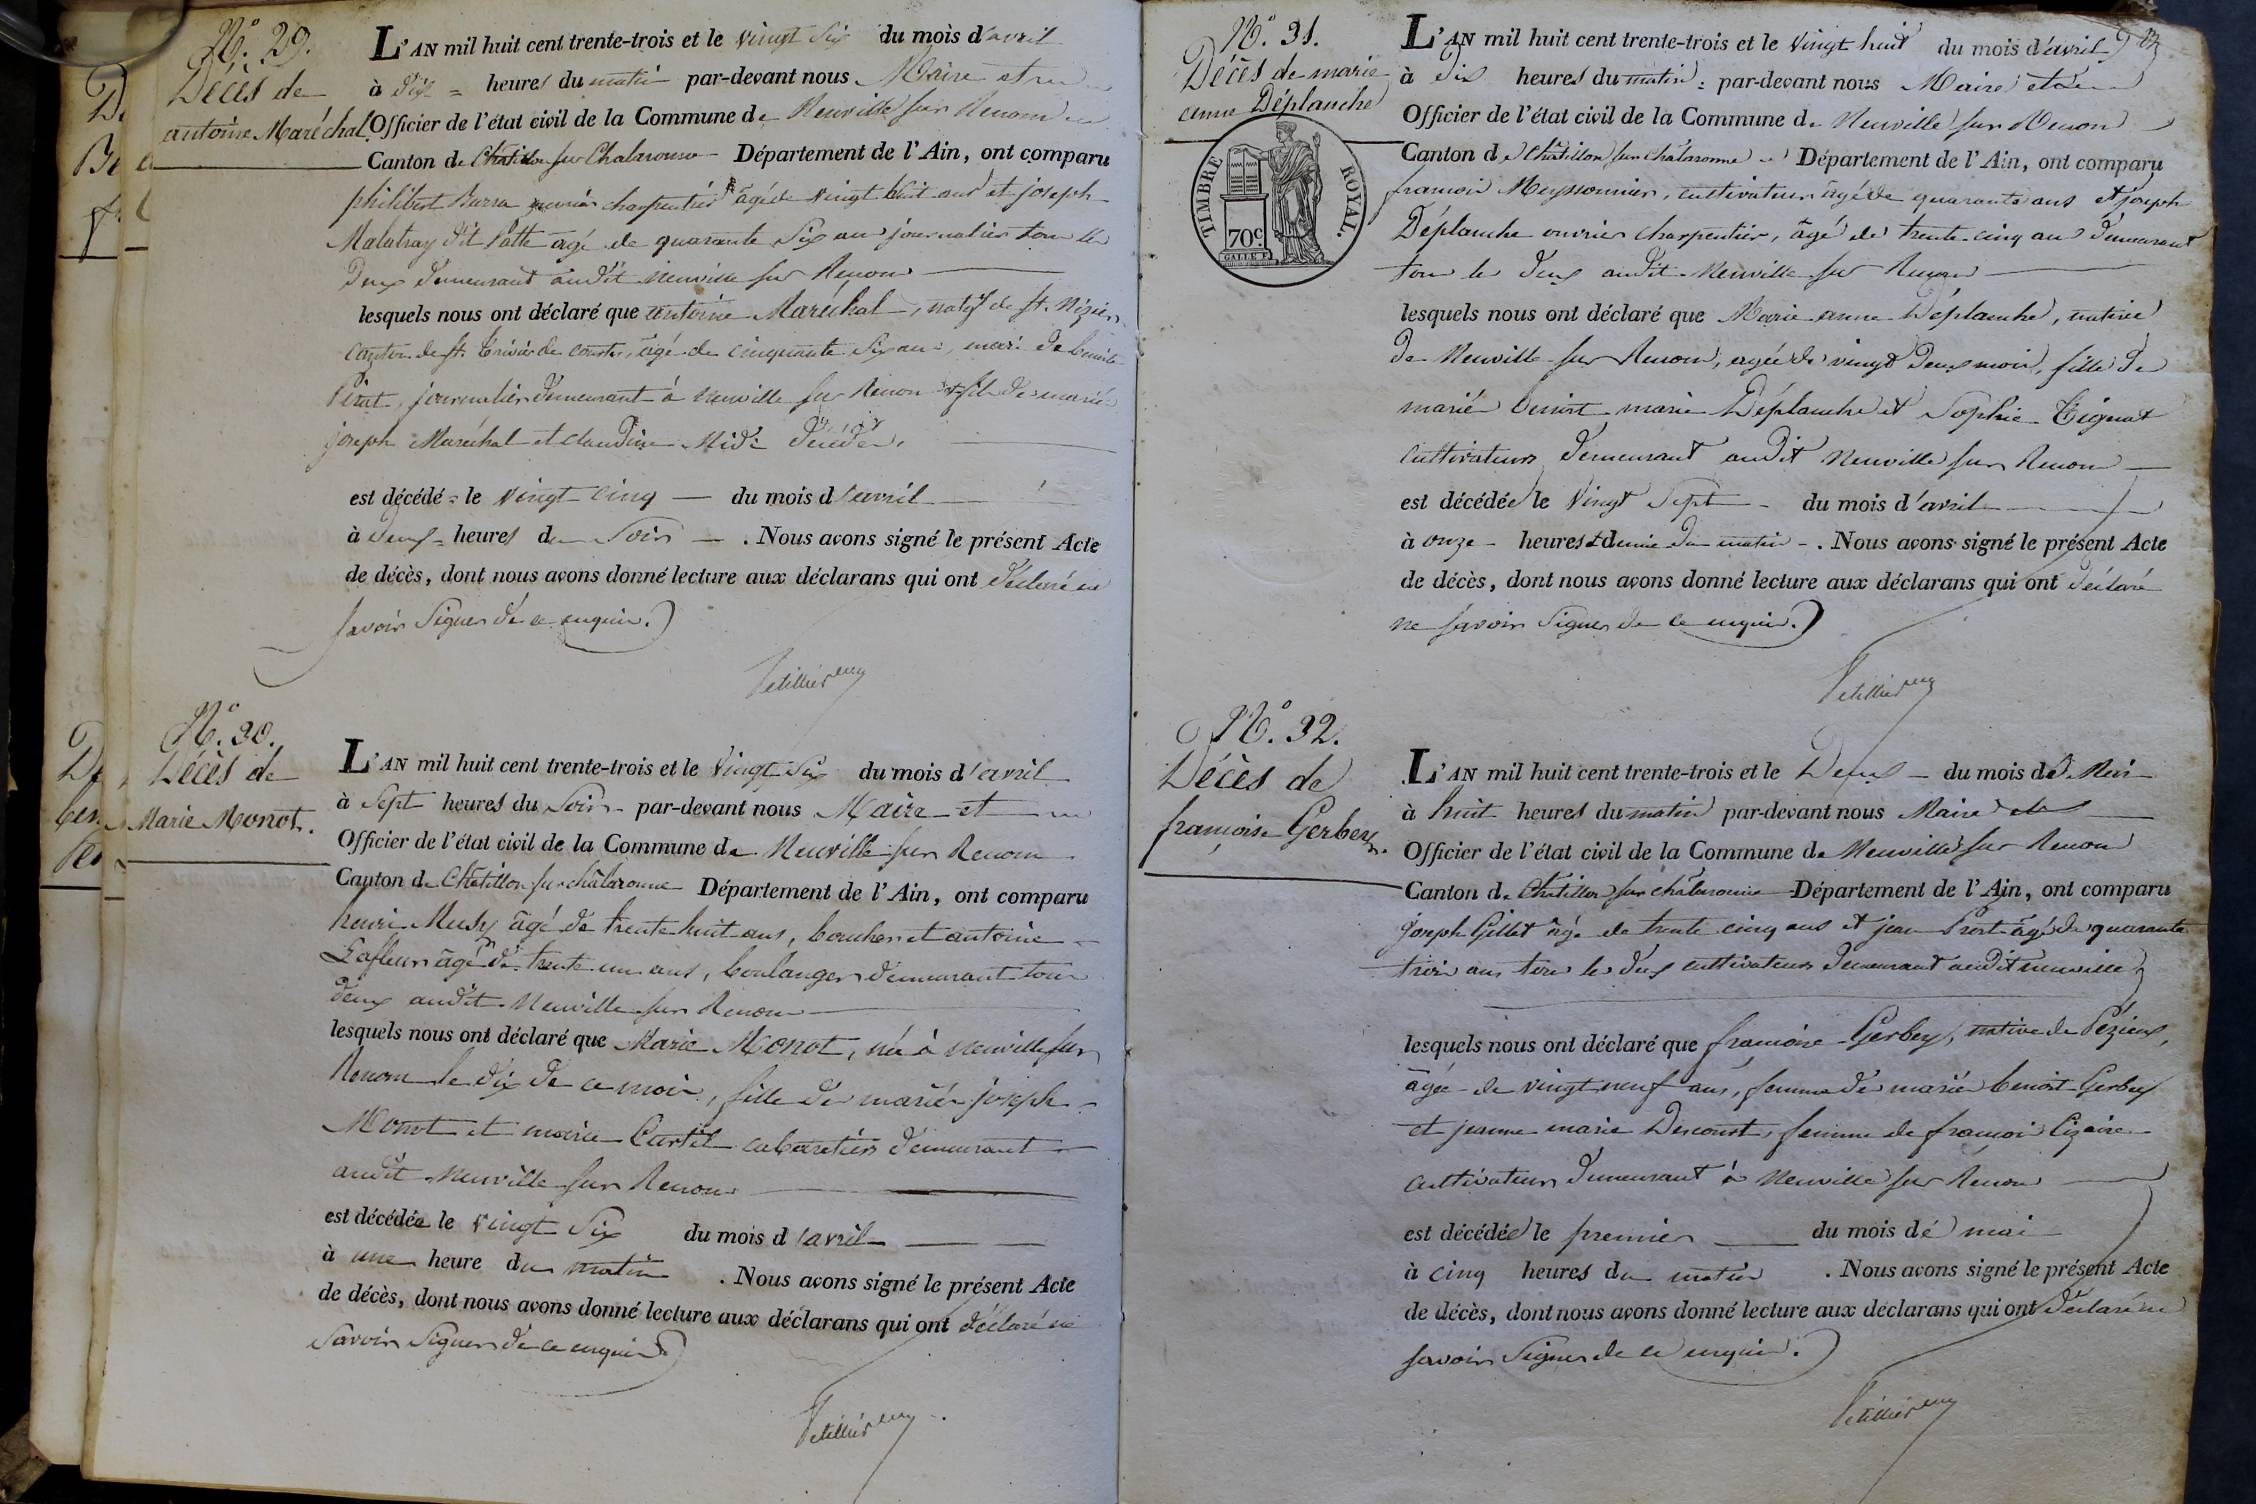 N°. 29.
Décès de
antoine Maréchal
L'AN mil huit cent trente-trois et le vingt six du mois d'avril
à dix heures du matin par-devant nous Maire et
Officier de l'état civil de la Commune de Neuville sur Renom
Canton de Châtillon sur Chalaronne Département de l'Ain, ont comparu
philibert Burra ouvrier charpentier âgé de vingt huit ans et joseph
Malatray dit Patte âgé de quarante six ans journalier tous les
deux demeurant audit neuville sur Renom
lesquels nous ont déclaré que antoine Maréchal, natif de st. Nizier
canton de st. trivier de courtes, âgé de cinquante six ans, mari de benoite
Pirat, journalier demeurant à neuville sur Renom et fils de mariés
joseph Maréchal et claudine Midi décédés.
est décédé le vingt cinq du mois d'avril
à deux heures du Soir. Nous avons signé le présent Acte
de décès, dont nous avons donné lecture aux déclarans qui ont déclaré ne
savoir signer de ce enquis.
N°. 30.
Décès de
Marie Monot.
L'AN mil huit cent trente-trois et le vingt six du mois d'avril
à sept heures du Soir par-devant nous Maire et
Officier de l'état civil de la Commune de Neuville sur Renom
Canton de Châtillon sur châlaronne Département de l'Ain, ont comparu
henri Musy âgé de trente huit ans, boucher et antoine
Lafleur âgé de trente un ans, boulanger demeurant tous
deux audit Neuville sur Renom
lesquels nous ont déclaré que Marie Monot, née à neuville sur
Renom le dix de ce mois, fille de mariés joseph
Monot et marie Curtil cabaretiers demeurant
audit neuville sur Renom
est décédée le vingt six du mois d'avril
à une heure du matin. Nous avons signé le présent Acte
de décès, dont nous avons donné lecture aux déclarans qui ont déclaré ne
savoir signer de ce enquis
N°. 31.
Décès de marie
anne Déplanche
TIMBRE ROYAL.
70c
L'AN mil huit cent trente-trois et le vingt huit du mois d'avril
à dix heures du matin par-devant nous Maire et
Officier de l'état civil de la Commune de Neuville sur Renom
Canton de Châtillon sur châlaronne Département de l'Ain, ont comparu
françois Meyssonnier, cultivateur âgé de quarante ans et joseph
Déplanche ouvrier charpentier, âgé de trente cinq ans demeurant
tous les deux audit Neuville sur Renom
lesquels nous ont déclaré que Marie anne Déplanche, native
de Neuville sur Renom, agée de vingt deux mois, fille de
mariés benoist marie Déplanche et Sophie Tignat
cultivateurs demeurant audit neuville sur Renom
est décédée le vingt sept du mois d'avril
à onze heures et demie du matin. Nous avons signé le présent Acte
de décès, dont nous avons donné lecture aux déclarans qui ont déclaré
ne savoir signer de ce enquis.
N°. 32.
Décès de
françoise Gerbey.
L'AN mil huit cent trente-trois et le Deux du mois de Mai
à huit heures du matin par-devant nous Maire et
Officier de l'état civil de la Commune de Neuville sur Renom
Canton de Châtillon sur châlaronne Département de l'Ain, ont comparu
joseph Gillet âgé de trente cinq ans et jean Prost âgé de quarante
trois ans tous les deux cultivateurs demeurant audit neuville
lesquels nous ont déclaré que françoise Gerbey, native de Pézieux,
âgée de vingt neuf ans, femme de mariés benoist Gerbey
et jeanne marie Descourt, femme de françois Cizaire
cultivateurs demeurant à Neuville sur Renom
est décédée le premier du mois de mai
à cinq heures du matin. Nous avons signé le présent Acte
de décès, dont nous avons donné lecture aux déclarans qui ont déclaré ne
savoir signer de ce enquis.